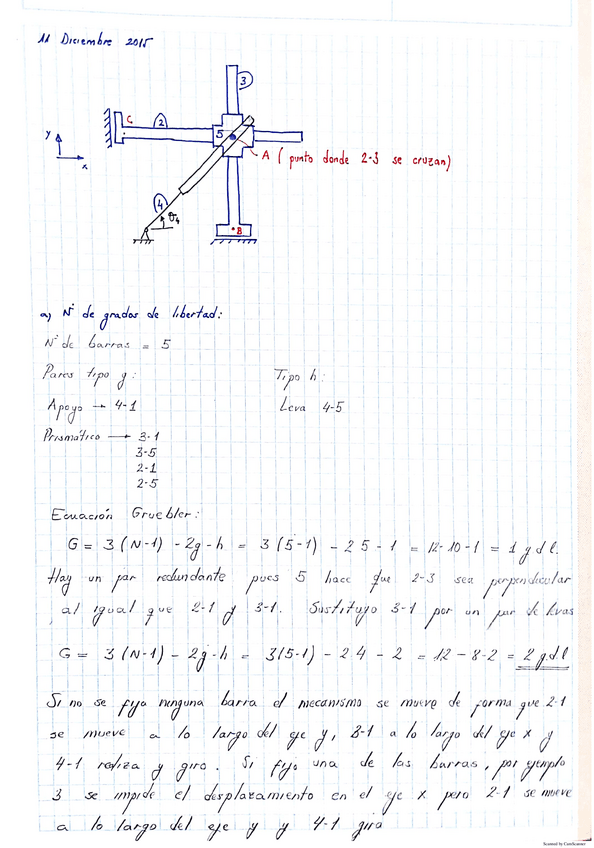 11 Diciembre 2015
3
C
2
5
A (punto donde 2-3 se cruzan)
y
x
4
θ4
B
a) Nº de grados de libertad:
Nº de barras = 5
Pares tipo g: Tipo h:
Apoyo → 4-1 Leva 4-5
Prismático → 3-1
3-5
2-1
2-5
Ecuación Gruebler:
G = 3 (N-1) - 2g - h = 3 (5-1) - 2 5 - 1 = 12-10-1 = 1 g d l.
Hay un par redundante pues 5 hace que 2-3 sea perpendicular
, al igual que 2-1 y 3-1. Sustituyo 3-1 por un par de levas
G = 3 (N-1) - 2g - h = 3(5-1) - 2 4 - 2 = 12 - 8-2 = 2 g.d.l
Si no se fija ninguna barra el mecanismo se mueve de forma que 2-1
se mueve a lo largo del eje y, 3-1 a lo largo del eje x y
4-1 realiza y giro. Si fijo una de las barras, por ejemplo
3 se impide el desplazamiento en el eje x pero 2-1 se mueve
a lo largo del eje y y 4-1 gira
Scanned by CamScanner